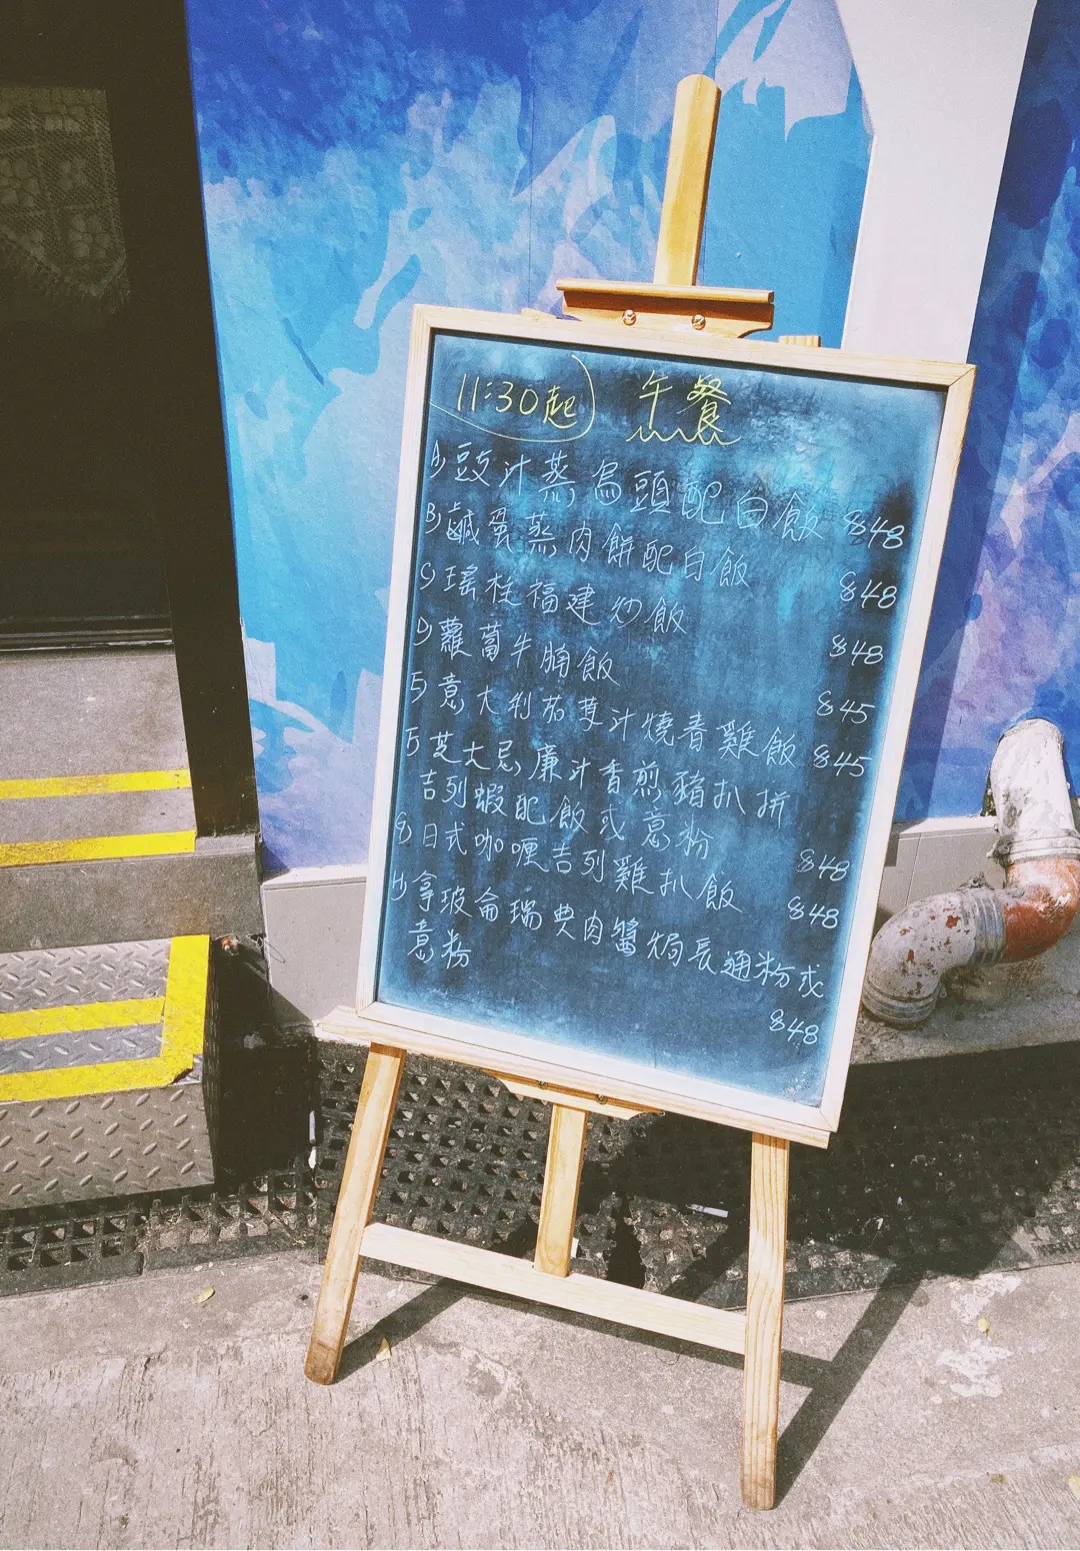 11:30起) 午餐
A) 豉汁蒸烏頭配白飯 $48
B) 鹹蛋蒸肉餅配白飯 $48
C) 瑤柱福建炒飯 $48
D) 蘿蔔牛腩飯 $45
E) 意大利茄茸汁燒春雞飯 $45
F) 芝士忌廉汁香煎豬扒拼
吉列蝦配飯或意粉 $48
G) 日式咖喱吉列雞扒飯 $48
H) 拿玻侖瑞典肉醬焗長通粉或
意粉 $48